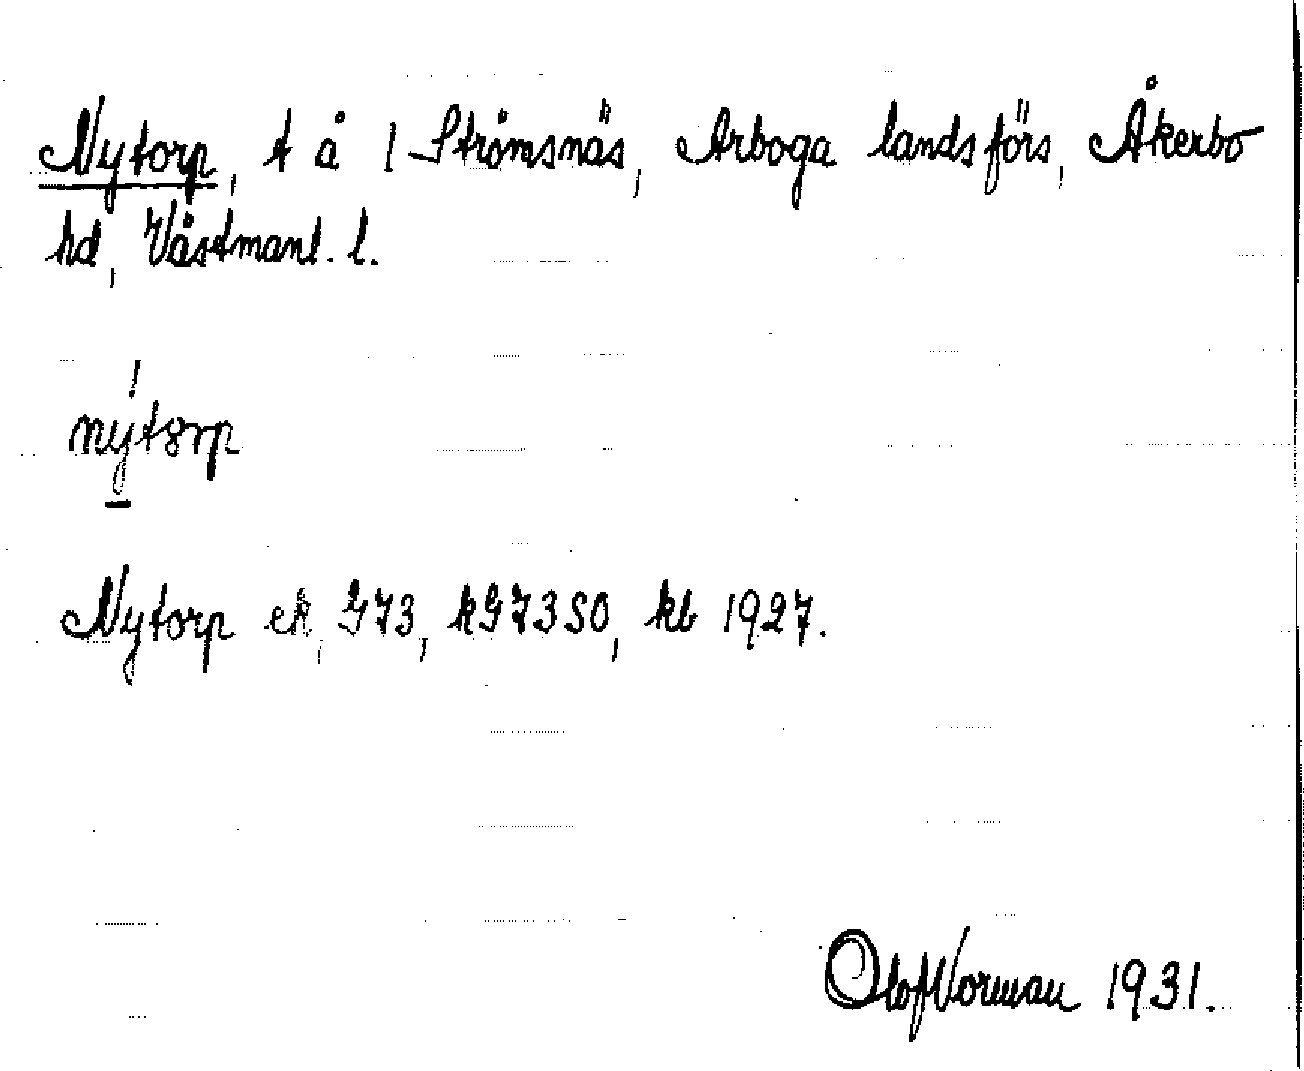 Nytorp, t å 1 Strömsnäs, Arboga landsförs, Åkerbo
hd, Västmanl. l.
nýtorp
Nytorp ek, G73, kG73SO, kb 1927.
Olof Norman 1931.